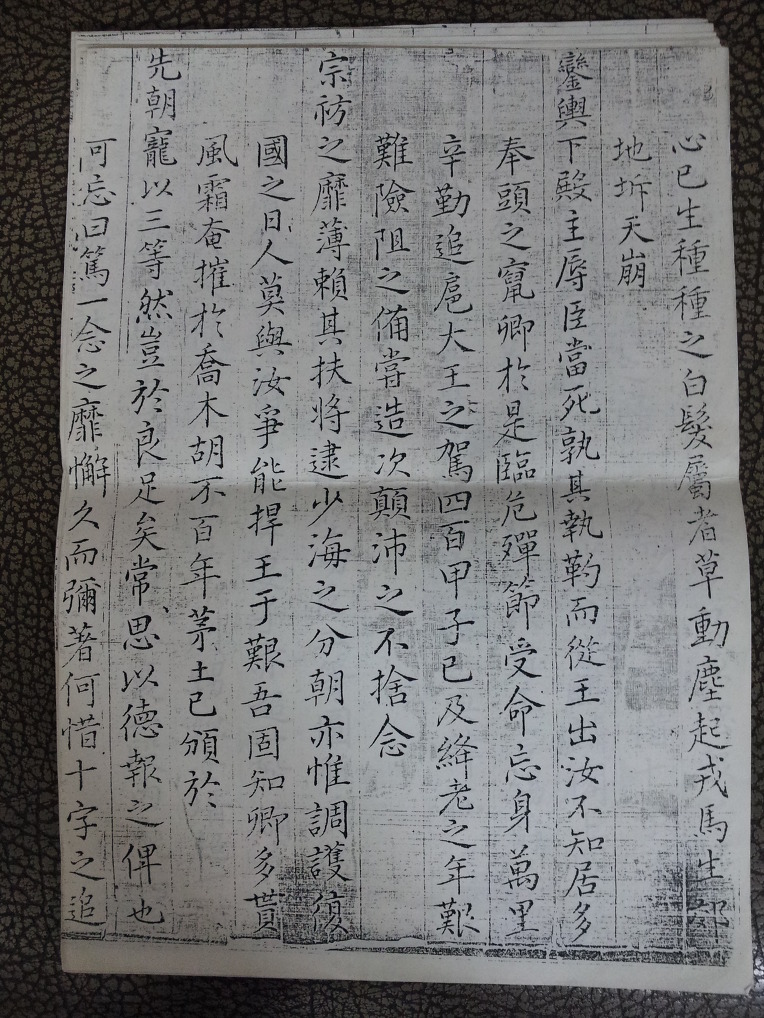 心已生種種之白髮屬者草動塵起戎馬生郊
地坼天崩
鑾輿下殿主辱臣當死孰其執靮而從王出汝不知居多
奉頭之竄卿於是臨危殫節受命忘身萬里
辛勤追扈大王之駕四百甲子已及絳老之年艱
難險阻之備嘗造次顛沛之不捨念
宗祊之靡薄賴其扶將逮少海之分朝亦惟調護復
國之日人莫與汝爭能捍王于艱吾固知卿多貰
風霜奄摧於喬木胡不百年茅土已頒於
先朝寵以三等然豈於良足矣常思以德報之俾也
可忘曰篤一念之靡懈久而彌著何惜十字之追